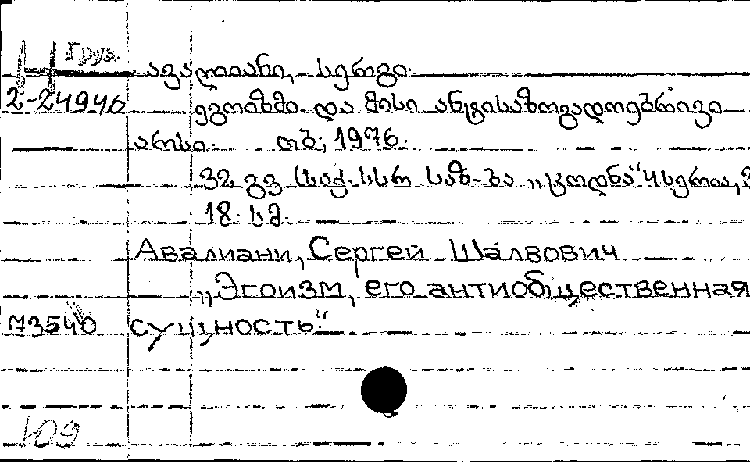 Груз.
ავალიანი, სერგი.
2-24940
ეგოიზმი და მისი ანტისაზოგადოებრივი
არსი. თბ., 1976.
32 გვ. (საქ. სსრ საზ-ბა „ცოდნა" 4 სერია,
18 სმ.
Авалиани, Сергей Шалвович
„Эгоизм, его антиобщественная
73540 сущность"
109